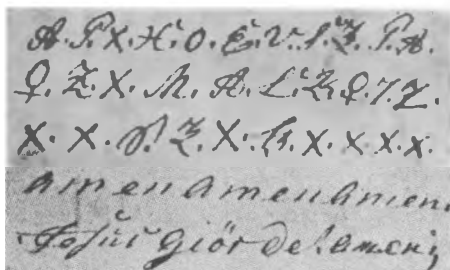 A. P. X. H. O. E. V. S. Z. P. A.
Q. Z. X. M. A. L. Z. Q. 7. Z.
X. X. S. Z. X. G. X. X. X. X.
amen amen amen
Jesus giör det amen;